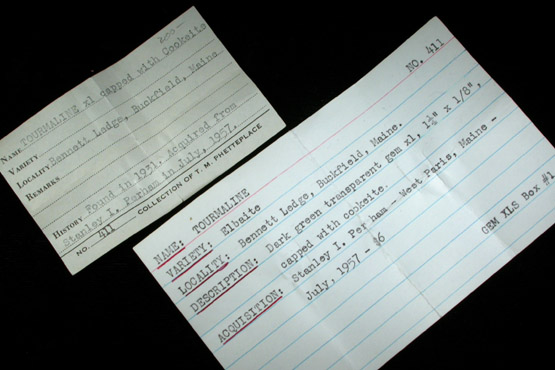 200—
NAME TOURMALINE xl capped with Cookeite
VARIETY
LOCALITY Bennett Ledge, Buckfield, Maine
REMARKS
HISTORY Found in 1951. Acquired from
Stanley I. Perham in July, 1957.
NO. 411 COLLECTION OF T. M. PHETTEPLACE
NO. 411
NAME: TOURMALINE
VARIETY: Elbaite
LOCALITY: Bennett Ledge, Buckfield, Maine.
DESCRIPTION: Dark green transparent gem xl, 1¼" x 1/8",
capped with cookeite.
ACQUISITION: Stanley I. Perham - West Paris, Maine -
July, 1957 - $6
GEM XLS Box #1